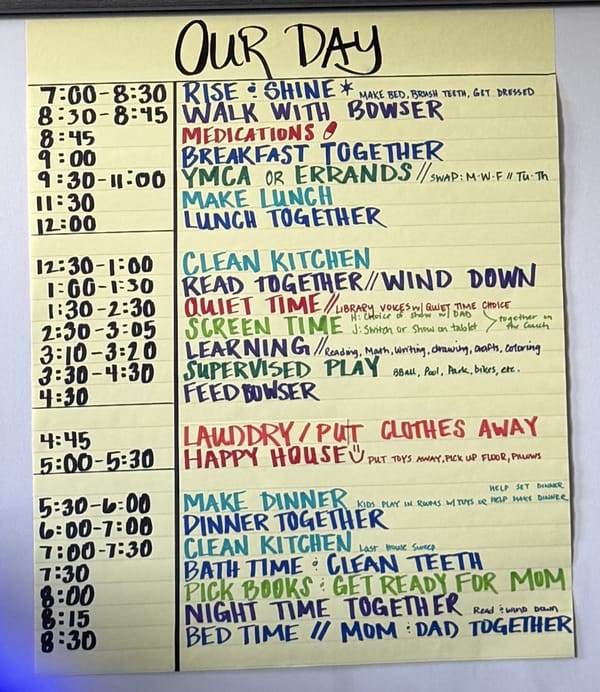 OUR DAY
7:00-8:30 RISE & SHINE * MAKE BED, BRUSH TEETH, GET DRESSED
8:30-8:45 WALK WITH BOWSER
8:45 MEDICATIONS
9:00 BREAKFAST TOGETHER
9:30-11:00 YMCA OR ERRANDS // SWAP: M·W·F // Tu·Th
11:30 MAKE LUNCH
12:00 LUNCH TOGETHER
12:30-1:00 CLEAN KITCHEN
1:00-1:30 READ TOGETHER // WIND DOWN
1:30-2:30 QUIET TIME // LIBRARY VOICES w/ QUIET TIME CHOICE
2:30-3:05 SCREEN TIME H: Choice of show w/ DAD
J: Switch or Show on tablet
together on
the couch
3:10-3:20 LEARNING // Reading, Math, Writing, drawing, crafts, coloring
3:30-4:30 SUPERVISED PLAY BBall, Pool, Park, bikes, etc.
4:30 FEED BOWSER
4:45 LAUNDRY / PUT CLOTHES AWAY
5:00-5:30 HAPPY HOUSE PUT TOYS AWAY, PICK UP FLOOR, PILLOWS
HELP SET DINNER
5:30-6:00 MAKE DINNER KIDS PLAY IN ROOMS w/ TOYS OR HELP MAKE DINNER
6:00-7:00 DINNER TOGETHER
7:00-7:30 CLEAN KITCHEN Last House Sweep
7:30 BATH TIME & CLEAN TEETH
8:00 PICK BOOKS & GET READY FOR MOM
8:15 NIGHT TIME TOGETHER Read & wind Down
8:30 BED TIME // MOM & DAD TOGETHER